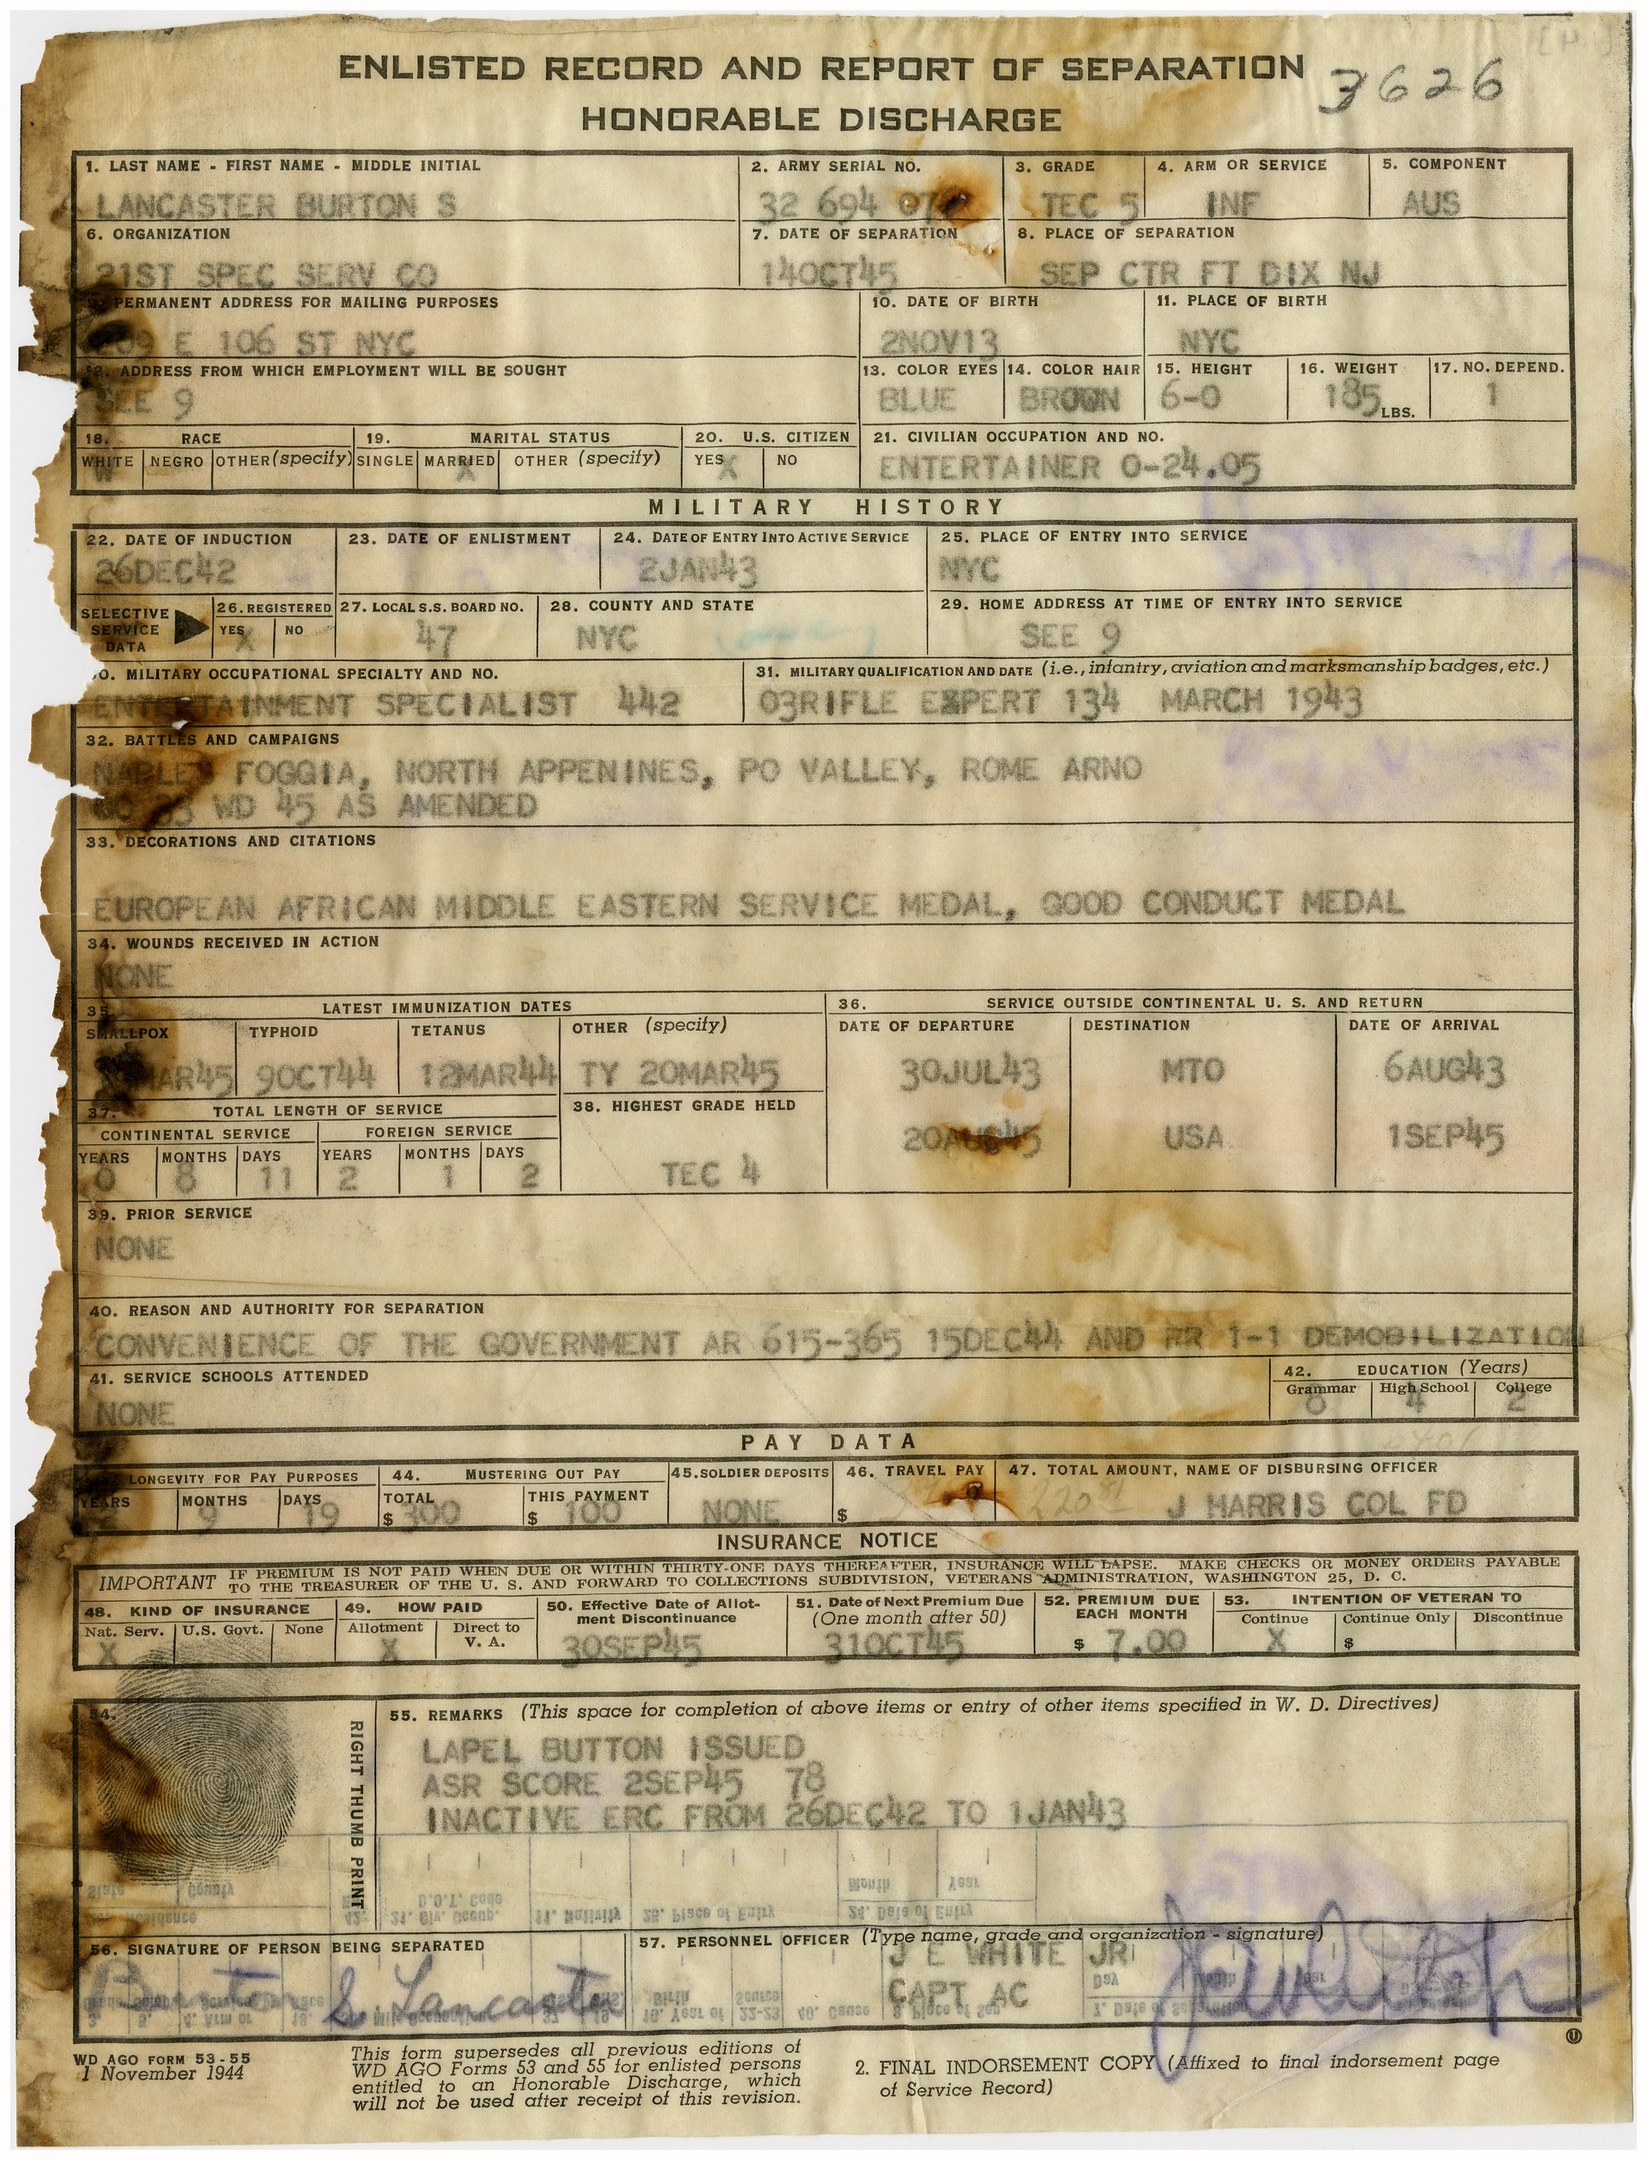 ENLISTED RECORD AND REPORT OF SEPARATION
HONORABLE DISCHARGE
3626
1. LAST NAME - FIRST NAME - MIDDLE INITIAL
LANCASTER BURTON S
2. ARMY SERIAL NO.
32 694 07
3. GRADE
TEC 5
4. ARM OR SERVICE
INF
5. COMPONENT
AUS
6. ORGANIZATION
21ST SPEC SERV CO
7. DATE OF SEPARATION
14OCT45
8. PLACE OF SEPARATION
SEP CTR FT DIX NJ
9. PERMANENT ADDRESS FOR MAILING PURPOSES
E 106 ST NYC
10. DATE OF BIRTH
2NOV13
11. PLACE OF BIRTH
NYC
12. ADDRESS FROM WHICH EMPLOYMENT WILL BE SOUGHT
SEE 9
13. COLOR EYES
BLUE
14. COLOR HAIR
BROWN
15. HEIGHT
6-0
16. WEIGHT
185 LBS.
17. NO. DEPEND.
1
18. RACE
WHITE NEGRO OTHER (specify)
W
19. MARITAL STATUS
SINGLE MARRIED OTHER (specify)
X
20. U.S. CITIZEN
YES NO
X
21. CIVILIAN OCCUPATION AND NO.
ENTERTAINER 0-24.05
MILITARY HISTORY
22. DATE OF INDUCTION
26DEC42
23. DATE OF ENLISTMENT
24. DATE OF ENTRY INTO ACTIVE SERVICE
2JAN43
25. PLACE OF ENTRY INTO SERVICE
NYC
SELECTIVE
SERVICE
DATA
26. REGISTERED
YES NO
X
27. LOCAL S.S. BOARD NO.
47
28. COUNTY AND STATE
NYC
29. HOME ADDRESS AT TIME OF ENTRY INTO SERVICE
SEE 9
30. MILITARY OCCUPATIONAL SPECIALTY AND NO.
ENTERTAINMENT SPECIALIST 442
31. MILITARY QUALIFICATION AND DATE (i.e., infantry, aviation and marksmanship badges, etc.)
03RIFLE EXPERT 134 MARCH 1943
32. BATTLES AND CAMPAIGNS
NAPLES FOGGIA, NORTH APPENINES, PO VALLEY, ROME ARNO
WD 45 AS AMENDED
33. DECORATIONS AND CITATIONS
EUROPEAN AFRICAN MIDDLE EASTERN SERVICE MEDAL, GOOD CONDUCT MEDAL
34. WOUNDS RECEIVED IN ACTION
NONE
35. LATEST IMMUNIZATION DATES
SMALLPOX TYPHOID TETANUS OTHER (specify)
MAR45 9OCT44 12MAR44 TY 20MAR45
36. SERVICE OUTSIDE CONTINENTAL U. S. AND RETURN
DATE OF DEPARTURE DESTINATION DATE OF ARRIVAL
30JUL43 MTO 6AUG43
20AUG45 USA 1SEP45
37. TOTAL LENGTH OF SERVICE
CONTINENTAL SERVICE FOREIGN SERVICE
YEARS MONTHS DAYS YEARS MONTHS DAYS
0 8 11 2 1 2
38. HIGHEST GRADE HELD
TEC 4
39. PRIOR SERVICE
NONE
40. REASON AND AUTHORITY FOR SEPARATION
CONVENIENCE OF THE GOVERNMENT AR 615-365 15DEC44 AND RR 1-1 DEMOBILIZATION
41. SERVICE SCHOOLS ATTENDED
NONE
42. EDUCATION (Years)
Grammar High School College
8 4 2
PAY DATA
LONGEVITY FOR PAY PURPOSES
YEARS MONTHS DAYS
9 19
44. MUSTERING OUT PAY
TOTAL THIS PAYMENT
$ 300 $ 100
45. SOLDIER DEPOSITS
NONE
46. TRAVEL PAY
$
47. TOTAL AMOUNT, NAME OF DISBURSING OFFICER
J HARRIS COL FD
INSURANCE NOTICE
IMPORTANT IF PREMIUM IS NOT PAID WHEN DUE OR WITHIN THIRTY-ONE DAYS THEREAFTER, INSURANCE WILL LAPSE. MAKE CHECKS OR MONEY ORDERS PAYABLE
TO THE TREASURER OF THE U. S. AND FORWARD TO COLLECTIONS SUBDIVISION, VETERANS ADMINISTRATION, WASHINGTON 25, D. C.
48. KIND OF INSURANCE
Nat. Serv. U.S. Govt. None
X
49. HOW PAID
Allotment Direct to V. A.
X
50. Effective Date of Allot-
ment Discontinuance
30SEP45
51. Date of Next Premium Due
(One month after 50)
31OCT45
52. PREMIUM DUE
EACH MONTH
$ 7.00
53. INTENTION OF VETERAN TO
Continue Continue Only Discontinue
X $
54.
RIGHT THUMB PRINT
55. REMARKS (This space for completion of above items or entry of other items specified in W. D. Directives)
LAPEL BUTTON ISSUED
ASR SCORE 2SEP45 78
INACTIVE ERC FROM 26DEC42 TO 1JAN43
56. SIGNATURE OF PERSON BEING SEPARATED
Burton S Lancaster
57. PERSONNEL OFFICER (Type name, grade and organization - signature)
J E WHITE JR
CAPT AC
WD AGO FORM 53-55
1 November 1944
This form supersedes all previous editions of
WD AGO Forms 53 and 55 for enlisted persons
entitled to an Honorable Discharge, which
will not be used after receipt of this revision.
2. FINAL INDORSEMENT COPY (Affixed to final indorsement page
of Service Record)